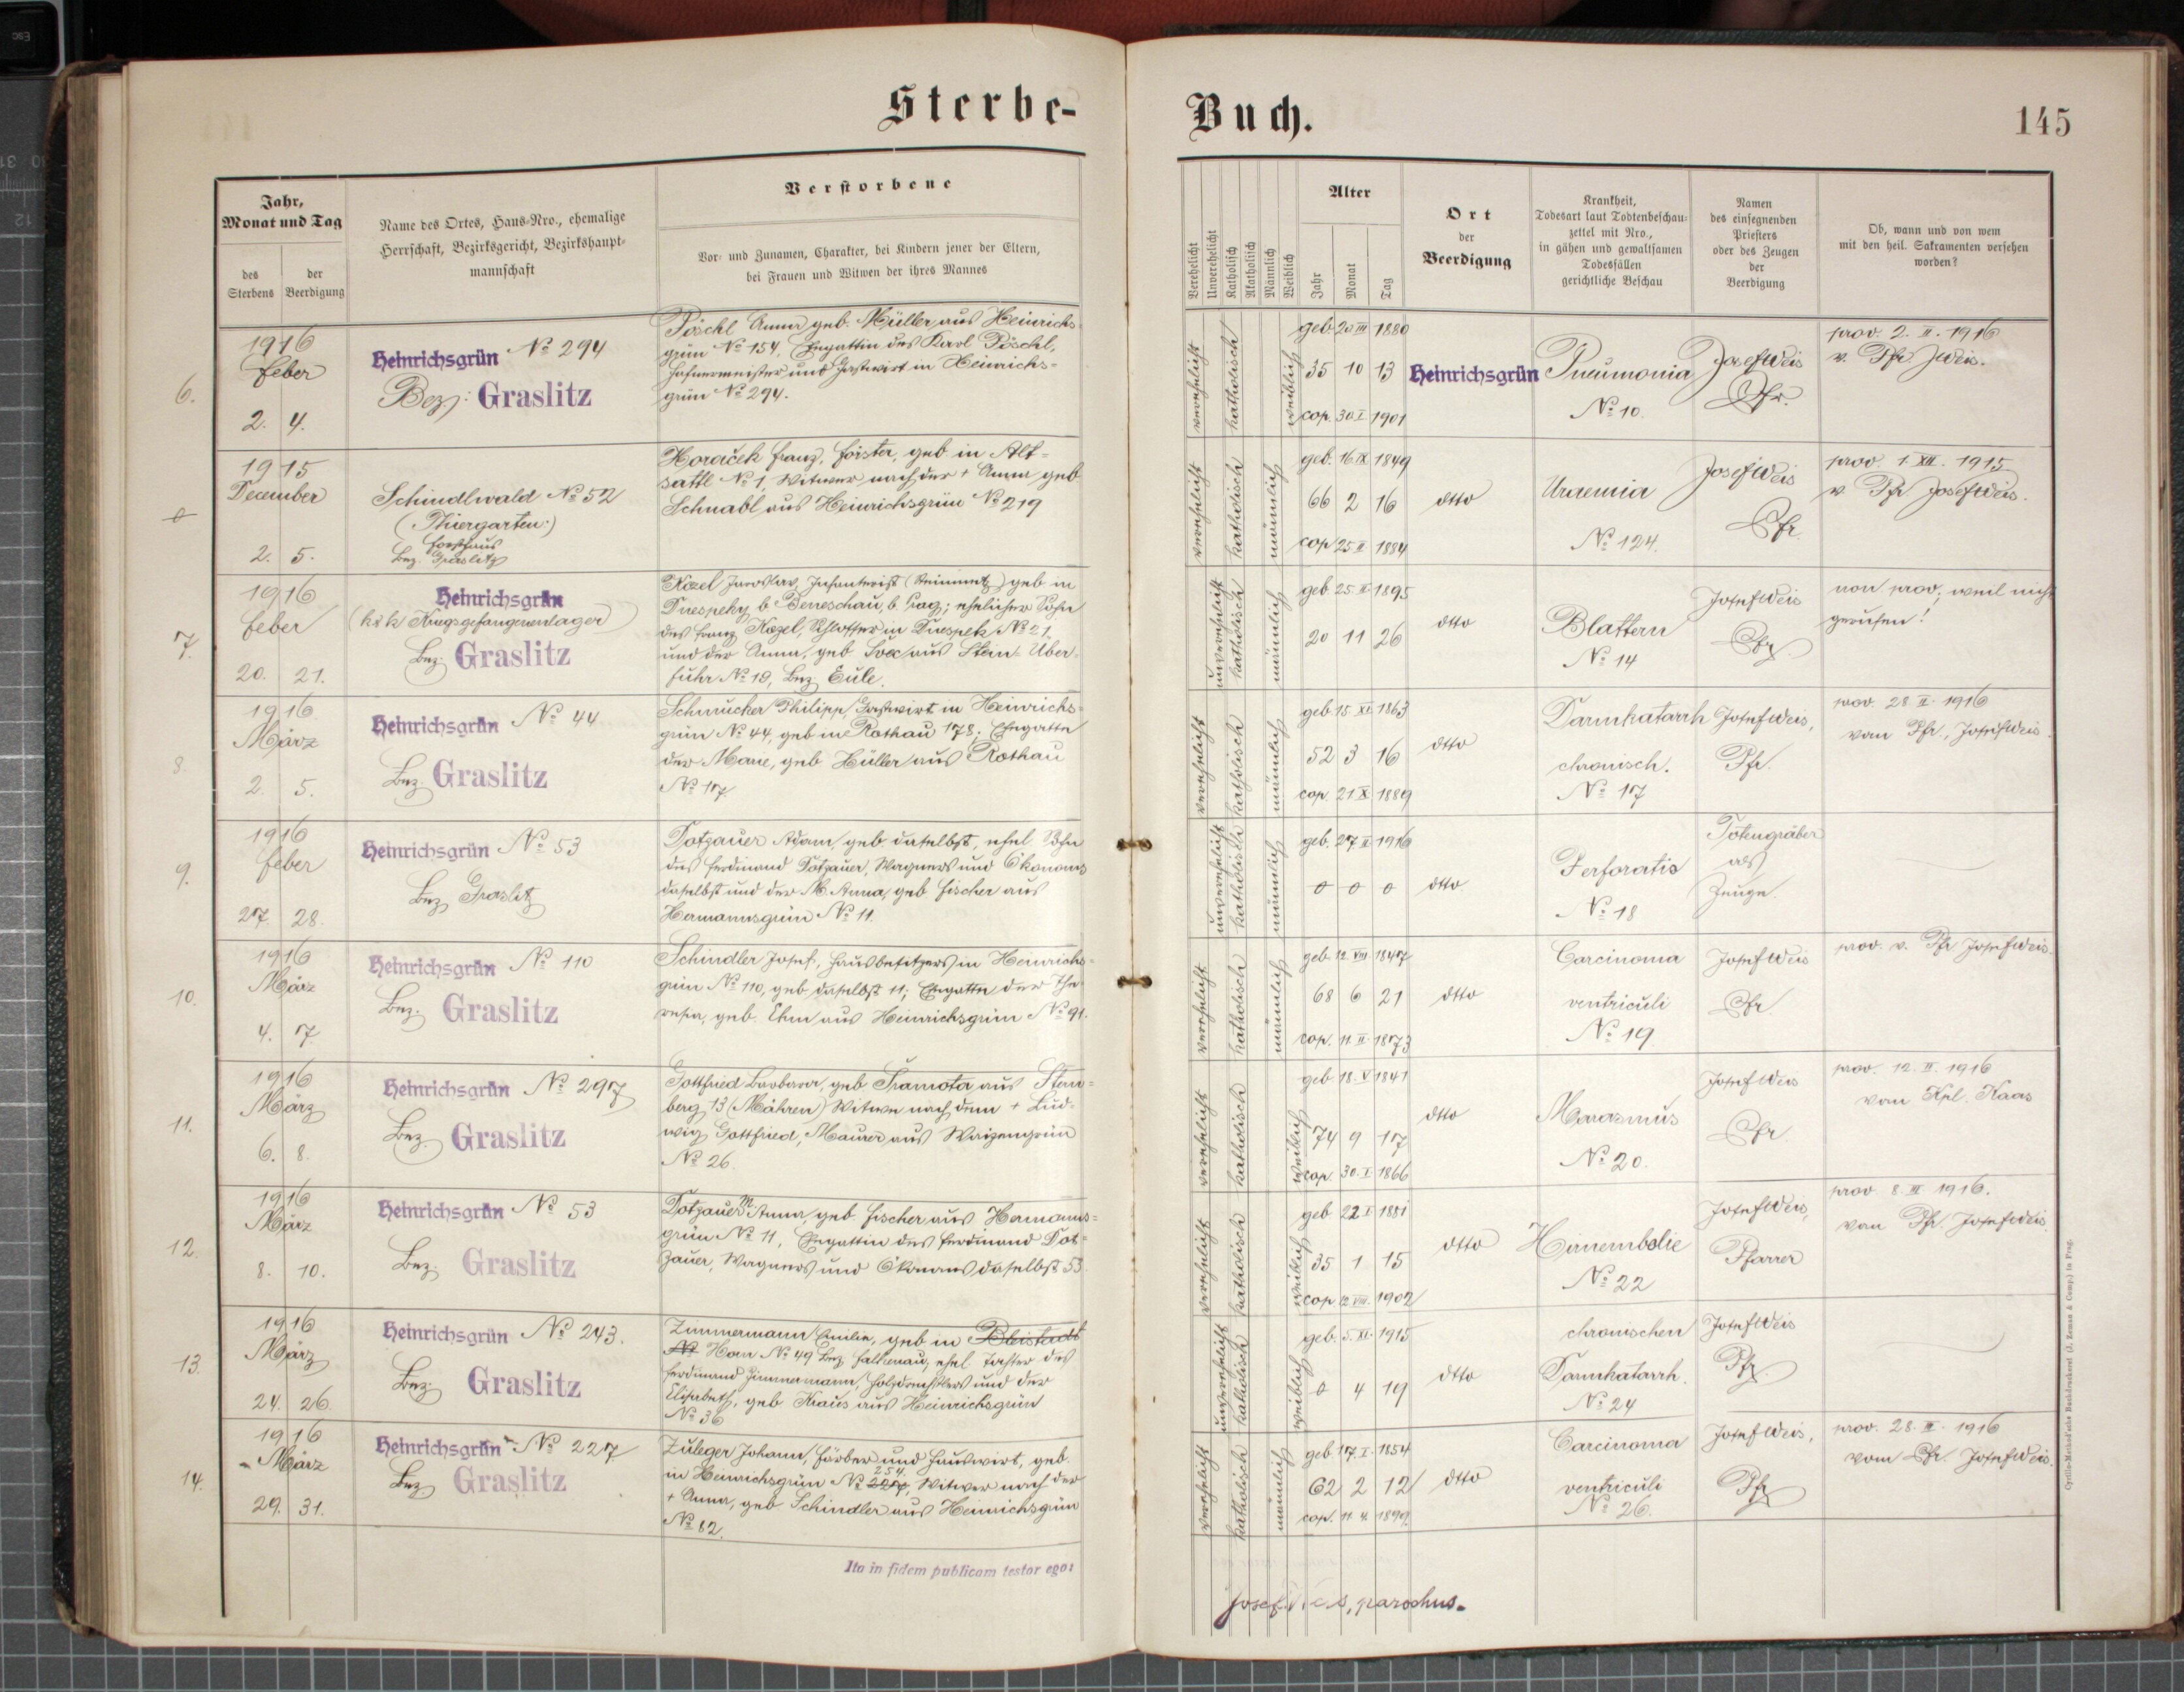 Sterbe-
Buch.
145
Jahr,
Monat und Tag
des
Sterbens
der
Beerdigung
Name des Ortes, Haus-Nro., ehemalige
Herrschaft, Bezirksgericht, Bezirkshaupt-
mannschaft
Verstorbene
Vor- und Zunamen, Charakter, bei Kindern jener der Eltern,
bei Frauen und Witwen der ihres Mannes
Verehelicht
Unverehelicht
Katholisch
Akatholisch
Männlich
Weiblich
Alter
Jahr
Monat
Tag
Ort
der
Beerdigung
Krankheit,
Todesart laut Todtenbeschau-
zettel mit Nro.,
in gähen und gewaltsamen
Todesfällen
gerichtliche Beschau
Namen
des einsegnenden
Priesters
oder des Zeugen
der
Beerdigung
Ob, wann und von wem
mit den heil. Sakramenten versehen
worden?
6.
1916
Feber
2. 4.
Heinrichsgrün № 294
Bez: Graslitz
Pöschl Anna geb. Müller aus Heinrichs-
grün № 154, Ehegattin des Karl Pöschl,
Hafnermeister und Gastwirt in Heinrichs-
grün № 294.
verehelicht
katholisch
weiblich
geb. 20 III 1880
35 10 13
cop. 30 I 1901
Heinrichsgrün
Pneumonia
№ 10.
Josef Weis
Pfr.
prov. 2. II. 1916
v. Pfr J Weis.
0
1915
December
2. 5.
Schindlwald № 52
(Thiergarten:)
Forsthaus
Bez. Graslitz
Horaček Franz, Förster, geb in Alt-
sattl № 1, Witwer nach der + Anna geb
Schnabl aus Heinrichsgrün № 219
verehelicht
katholisch
männlich
geb. 16 IX 1849
66 2 16
cop 25 II 1884
dtto
Uraemia
№ 124.
Josef Weis
Pfr.
prov. 1. XII. 1915
v. Pfr Josef Weis.
7.
1916
Feber
20. 21.
Heinrichsgrün
(k&k Kriegsgefangenenlager)
Bez. Graslitz
Kozel Jaroslav, Infanterist (Steinmetz) geb in
Dnespeky b Beneschau, b. Prag; ehelicher Sohn
des Franz Kozel, Schlosser in Dnespek № 21.
und der Anna, geb Svec aus Stan. Über-
fuhr № 19, Bez. Eule.
unverehelicht
katholisch
männlich
geb 25 II 1895
20 11 26
dtto
Blattern
№ 14
Josef Weis
Pfr.
non prov., weil nicht
gerufen!
8.
1916
März
2. 5.
Heinrichsgrün № 44
Bez. Graslitz
Schmucker Philipp, Gastwirt in Heinrichs-
grün № 44, geb in Rothau 178; Ehegatte
der Marie, geb Hüller aus Rothau
№ 117
verehelicht
katholisch
männlich
geb 15 XI 1863
52 3 16
cop. 21 X 1889
dtto
Darmkatarrh
chronisch.
№ 17
Josef Weis,
Pfr.
prov. 28 II. 1916
vom Pfr, Josef Weis.
9.
1916
Feber
27. 28.
Heinrichsgrün № 53
Bez Graslitz
Dotzauer Adam, geb daselbst, ehel Sohn
des Ferdinand Dotzauer, Wagners und Ökonoms
daselbst und der M. Anna, geb Fischer aus
Hermannsgrün № 11.
unverehelicht
katholisch
männlich
geb. 27. II 1916
0 0 0
dtto.
Perforatio
№ 18
Totengräber
als
Zeuge.
10.
1916
März
4. 7.
Heinrichsgrün № 110
Bez. Graslitz
Schindler Josef, Hausbesitzers in Heinrichs-
grün № 110, geb. daselbst 11; Ehegatte der The-
resia, geb. Ehm aus Heinrichsgrün № 91.
verehelicht
katholisch
männlich
geb. 12. VIII 1847
68 6 21
cop. 11. II. 1873
dtto
Carcinoma
ventriculi
№ 19.
Josef Weis
Pfr.
prov. v. Pfr Josef Weis.
11.
1916
März
6. 8.
Heinrichsgrün № 297
Bez. Graslitz
Gottfried Barbara, geb Tramota aus Stern-
berg 13 (Mähren) Witwe nach dem + Lud-
wig Gottfried, Maurer aus Waizengrün
№ 26.
verehelicht
katholisch
weiblich
geb. 18. V 1841
74 9 17
cop. 30. I. 1866
dtto
Marasmus
№ 20.
Josef Weis
Pfr.
prov. 12. II. 1916
vom Kpl. Kaas
12.
1916
März
8. 10.
Heinrichsgrün № 53
Bez. Graslitz
Dotzauer M. Anna, geb Fischer aus Hermanns-
grün № 11, Ehegattin des Ferdinand Dot-
zauer, Wagners und Ökonoms daselbst 53.
verehelicht
katholisch
weiblich
geb 22 I 1881
35 1 15
cop 12. VIII. 1902
dtto
Hirnembolie
№ 22
Josef Weis,
Pfarrer
prov. 8. III 1916.
vom Pfr. Josef Weis.
13.
1916
März
24. 26.
Heinrichsgrün № 243.
Bez. Graslitz
Zimmermann Emilie, geb in Bleistadt
№ Horn № 49 Bez Falkenau, ehel Tochter des
Ferdinand Zimmermann, Holzdrechslers und der
Elisabeth, geb Kraus aus Heinrichsgrün
№ 36
unverehelicht
katholisch
weiblich
geb. 5. XI. 1915
0 4 19
dtto
chronischen
Darmkatarrh.
№ 24
Josef Weis
Pfr.
14.
1916
März
29. 31.
Heinrichsgrün № 227
Bez Graslitz
Zuleger Johann, Färber und Hauswirt, geb.
in Heinrichsgrün № 227, 254. Witwer nach der
+ Anna, geb Schindler aus Heinrichsgrün
№ 82.
verehelicht
katholisch
männlich
geb 17. I. 1854
62 2 12
cop. 11. 4. 1899.
dtto
Carcinoma
ventriculi
№ 26.
Josef Weis,
Pfr
prov. 28. III. 1916
vom Pfr. Josef Weis.
Ita in fidem publicam testor ego:
Josef Weis, parochus.
Cyrillo-Method'sche Buchdruckerei (J. Zeman & Comp.) in Prag.